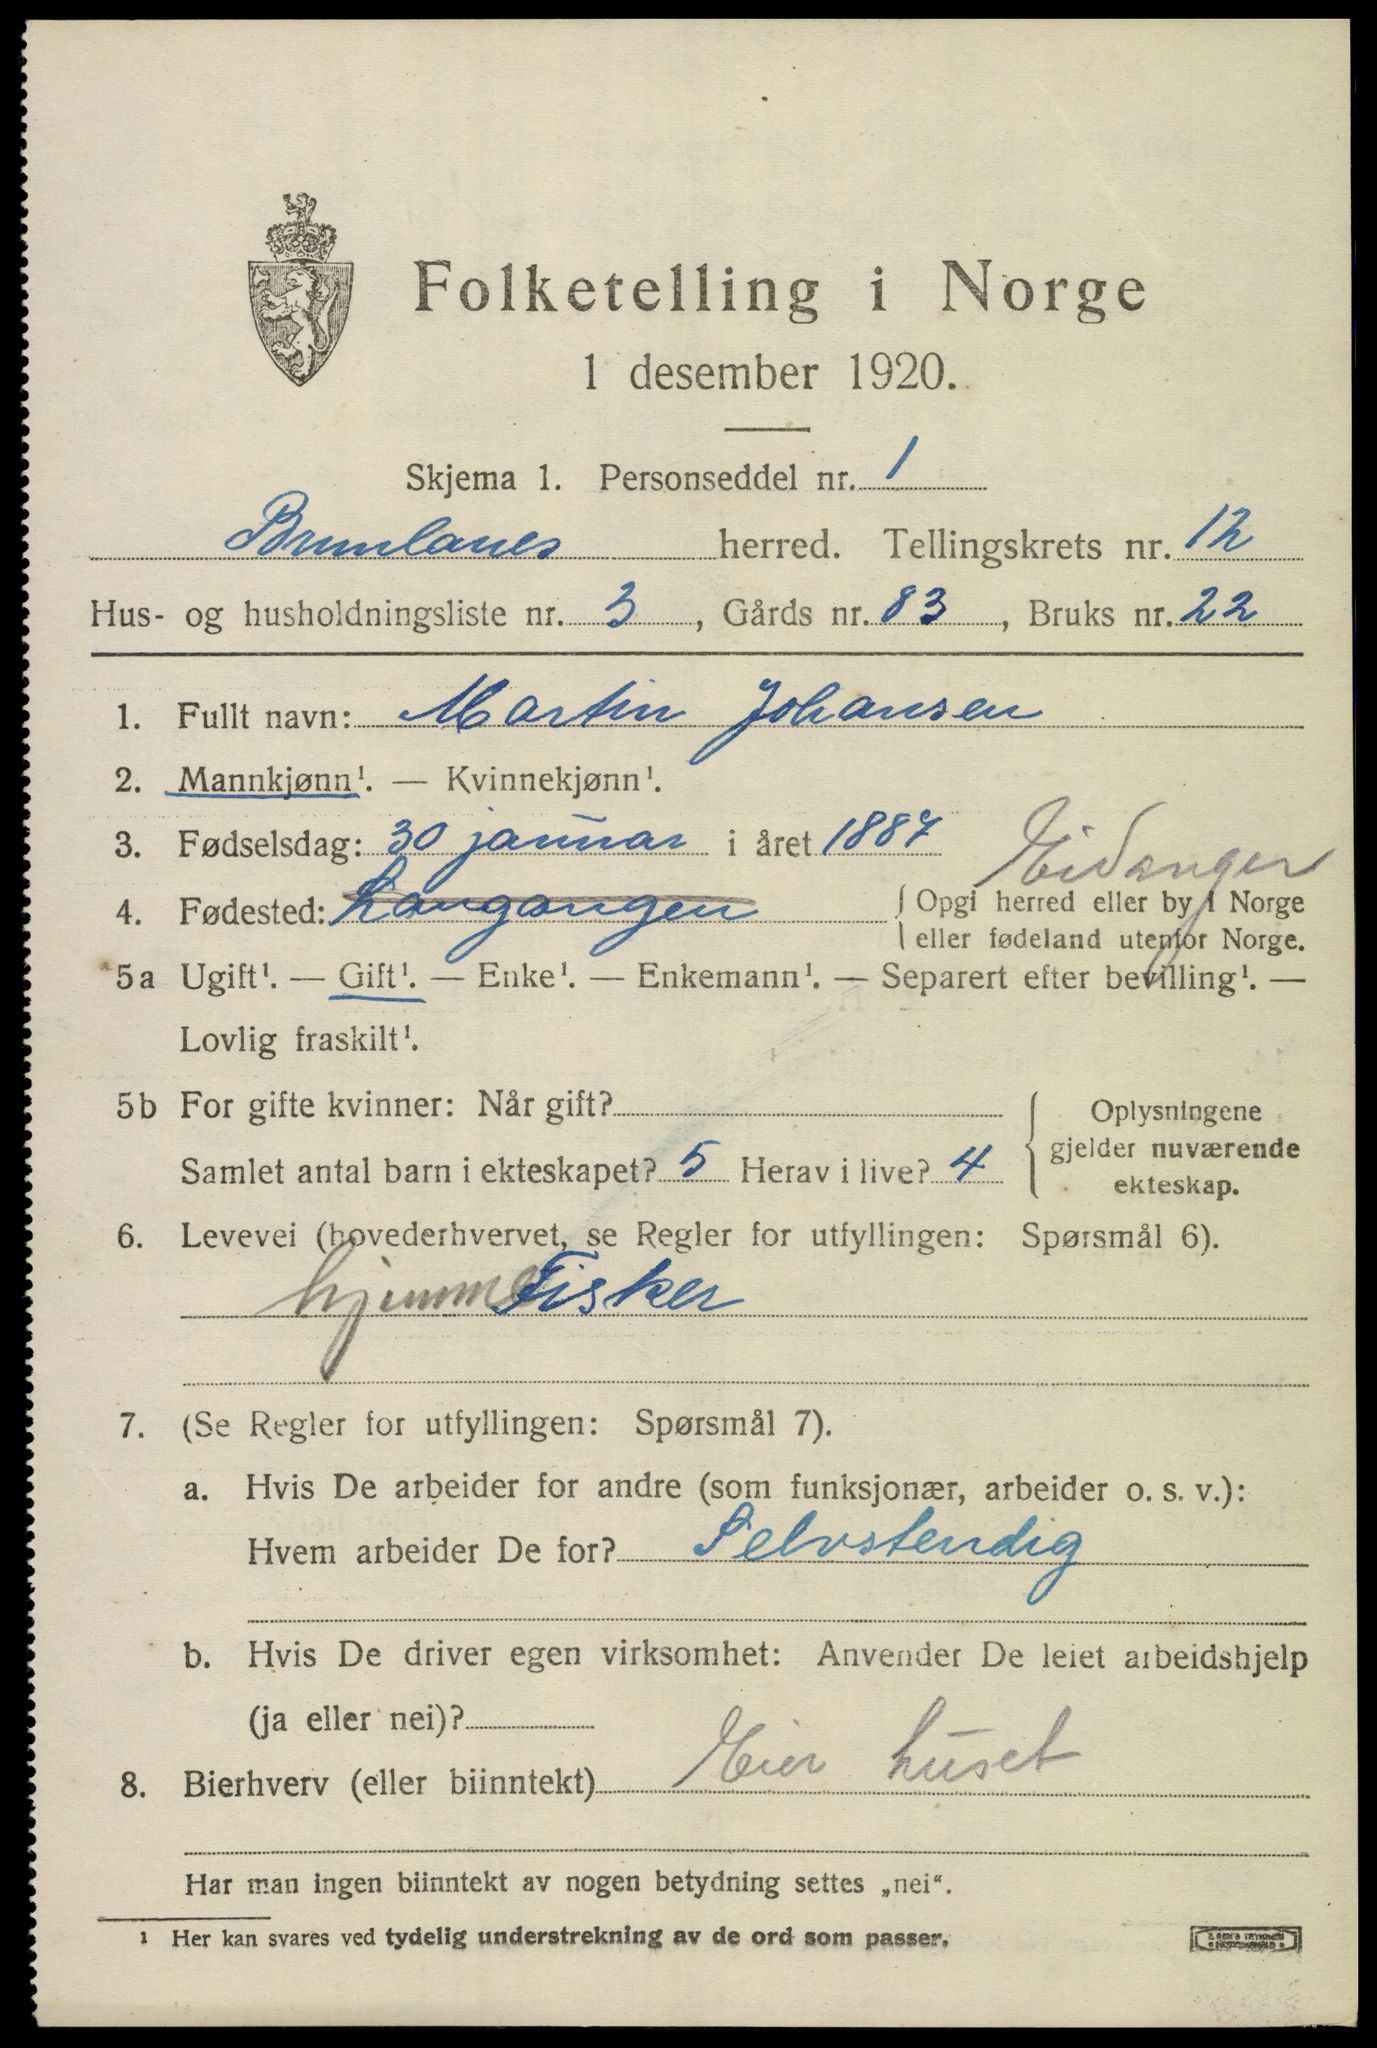 Folketelling i Norge
1 desember 1920.
Skjema 1. Personseddel nr. 1
Brunlanes herred. Tellingskrets nr. 12
Hus- og husholdningsliste nr. 3, Gårds nr. 83, Bruks nr. 22
1. Fullt navn: Martin Johansen
2. Mannkjønn¹. — Kvinnekjønn¹.
3. Fødselsdag: 30 januar i året 1887
Eidanger
4. Fødested: Langangen { Opgi herred eller by i Norge
eller fødeland utenfor Norge.
5a Ugift¹. — Gift¹. — Enke¹. — Enkemann¹. — Separert efter bevilling¹. —
Lovlig fraskilt¹.
5b For gifte kvinner: Når gift?
Samlet antal barn i ekteskapet? 5 Herav i live? 4
{ Oplysningene
gjelder nuværende
ekteskap.
6. Levevei (hovederhvervet, se Regler for utfyllingen: Spørsmål 6).
hjemme Fisker
7. (Se Regler for utfyllingen: Spørsmål 7).
a. Hvis De arbeider for andre (som funksjonær, arbeider o. s. v.):
Hvem arbeider De for? Selvstendig
b. Hvis De driver egen virksomhet: Anvender De leiet arbeidshjelp
(ja eller nei)?
8. Bierhverv (eller biinntekt) Eier huset
Har man ingen biinntekt av nogen betydning settes „nei“.
¹ Her kan svares ved tydelig understrekning av de ord som passer.